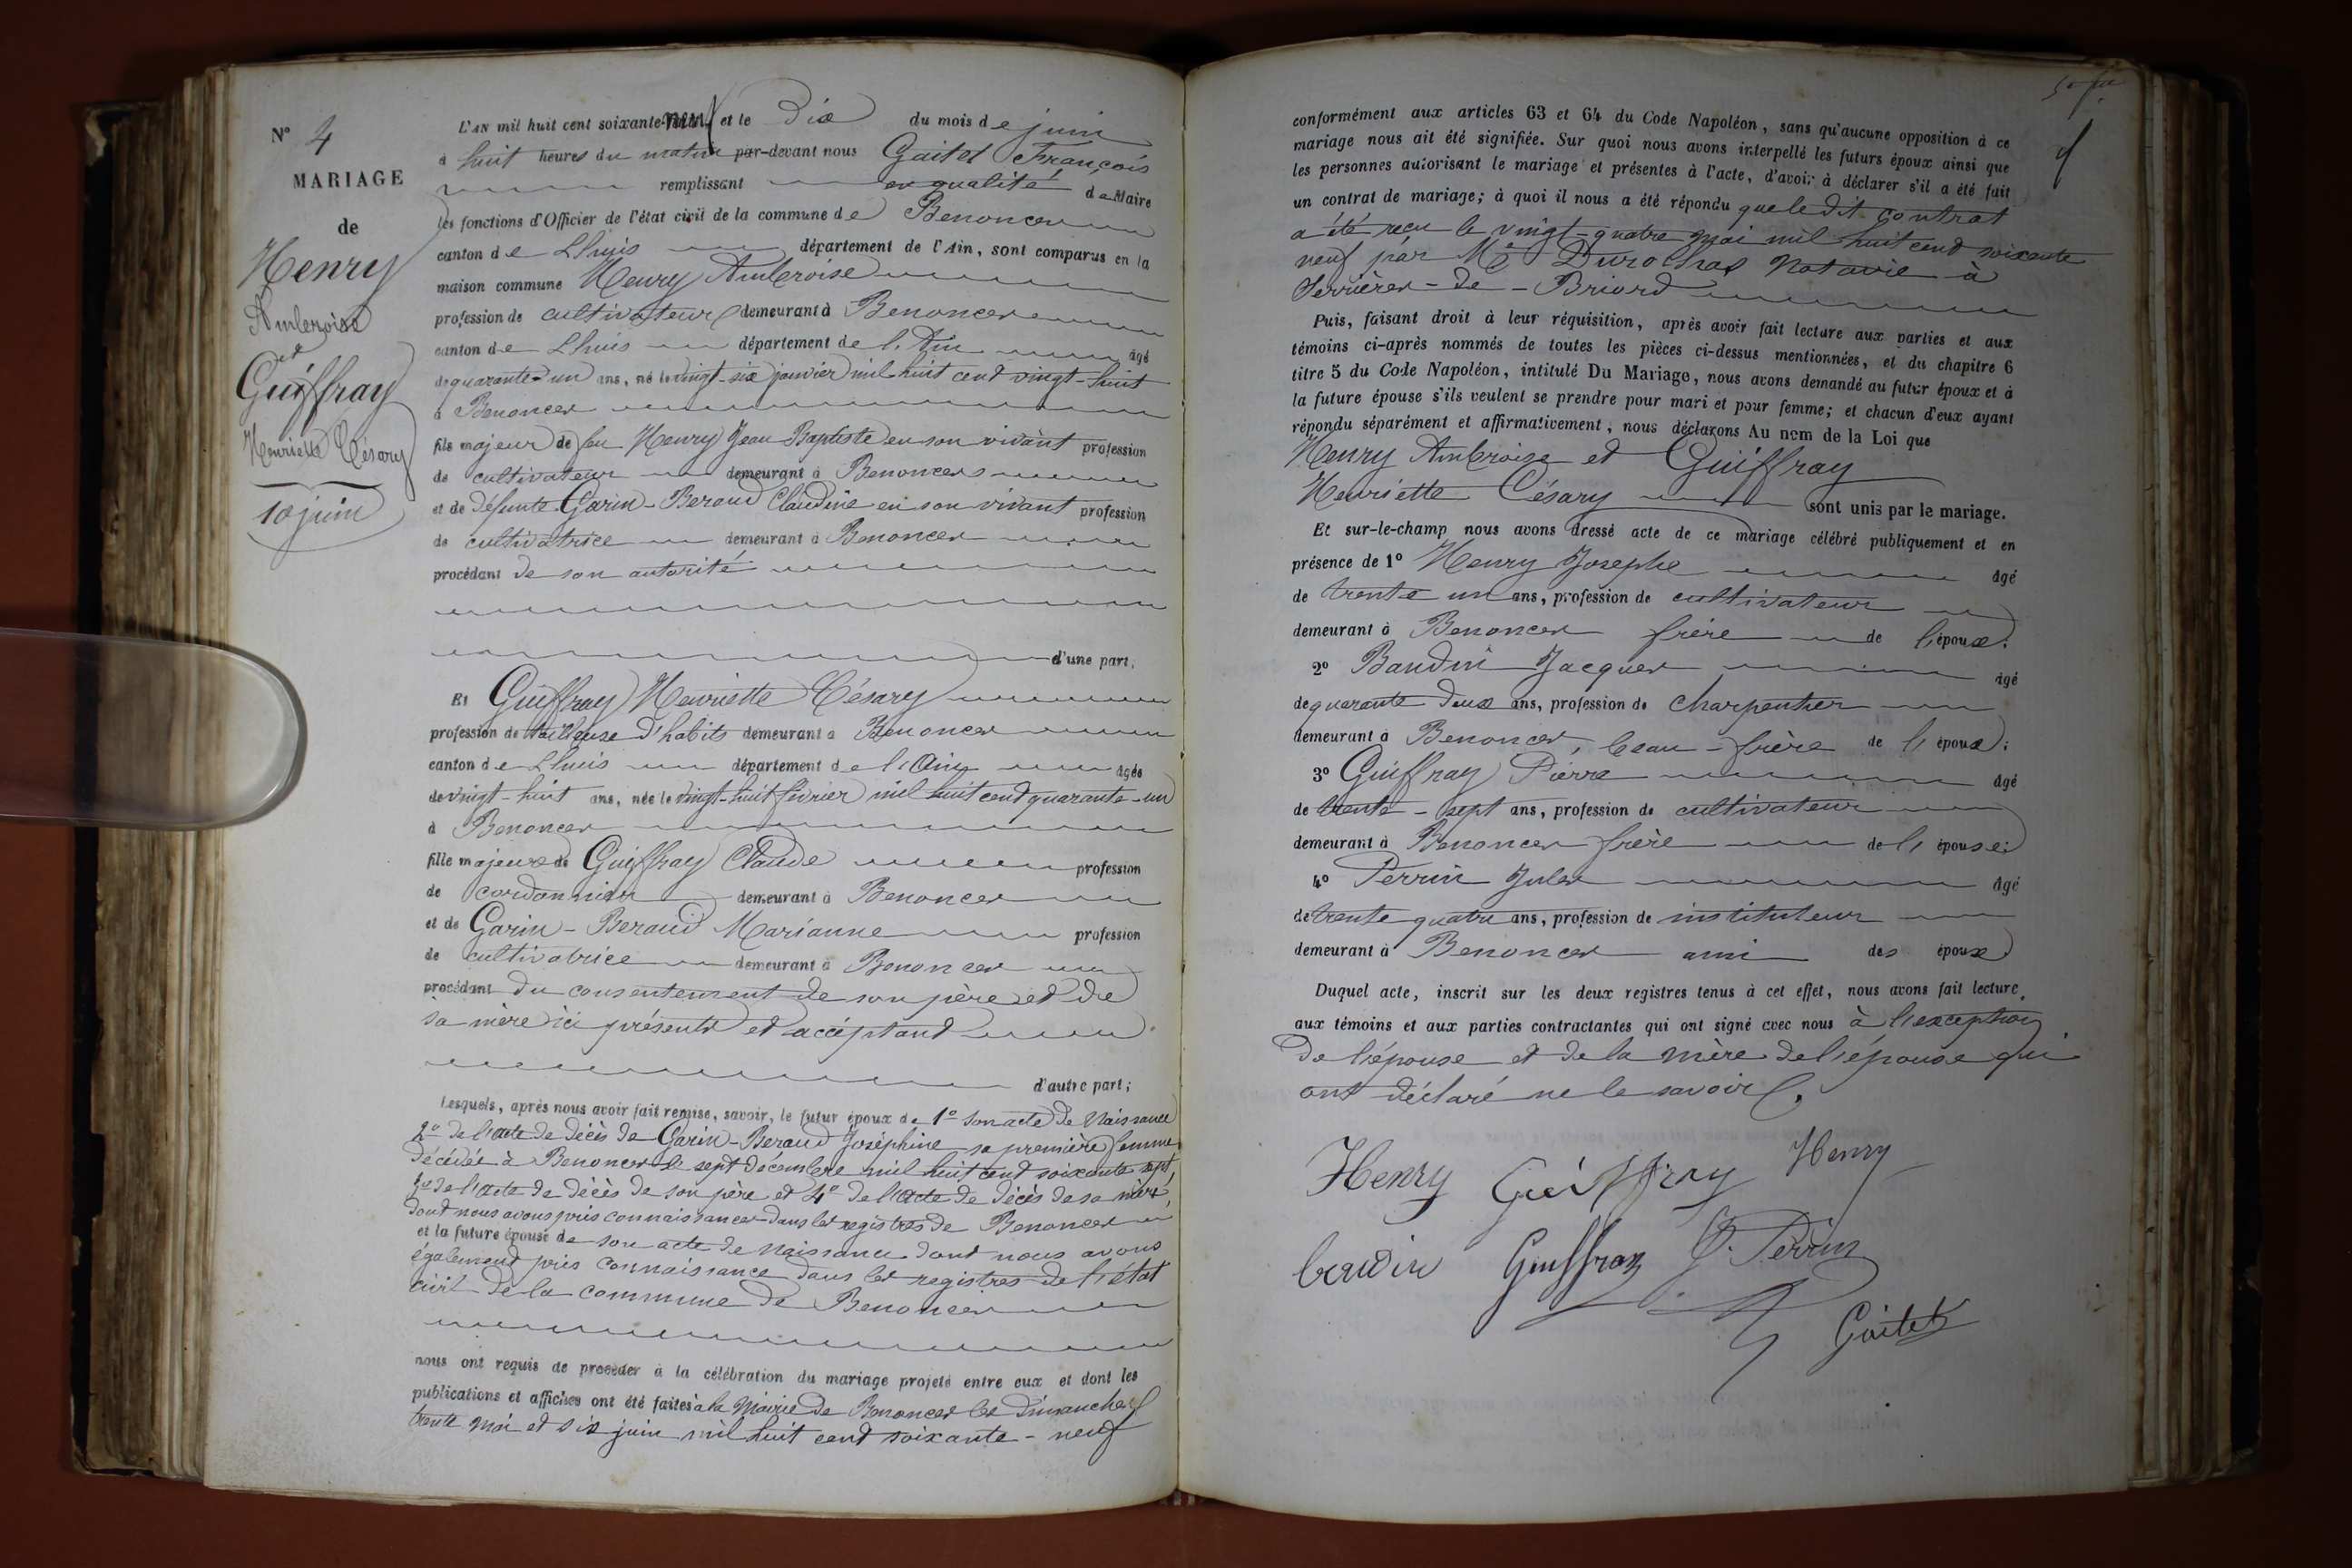 N° 4
MARIAGE
de
Henry
Ambroise
et
Guiffray
Henriette Césary
10 juin
L'AN mil huit cent soixante-neuf et le Dix du mois de juin
à huit heures du matin par-devant nous Gaitet François
remplissant en qualité de Maire
les fonctions d'Officier de l'état civil de la commune de Benonces
canton de Lhuis département de l'Ain, sont comparus en la
maison commune Henry Ambroise
profession de cultivateur demeurant à Benonces
canton de Lhuis département de l'Ain âgé
de quarante-un ans, né le vingt-six janvier mil huit cent vingt-huit
à Benonces
fils majeur de feu Henry Jean Baptiste en son vivant profession
de cultivateur demeurant à Benonces
et de défunte Garin-Beraud Claudine en son vivant profession
de cultivatrice demeurant à Benonces
procédant de son autorité
d'une part,
Et Guiffray Henriette Césary
profession de tailleuse d'habits demeurant à Benonces
canton de Lhuis département de l'Ain âgée
de vingt-huit ans, née le vingt-huit février mil huit cent quarante-un
à Benonces
fille majeure de Guiffray Claude profession
de cordonnier demeurant à Benonces
et de Garin-Beraud Marianne profession
de cultivatrice demeurant à Benonces
procédant du consentement de son père et de
sa mère ici présents et acceptant
d'autre part;
Lesquels, après nous avoir fait remise, savoir, le futur époux de 1° son acte de Naissance
2° de l'acte de décès de Garin-Beraud Joséphine sa première femme
décédée à Benonces le sept décembre mil huit cent soixante sept,
3° de l'acte de décès de son père et 4° de l'acte de décès de sa mère,
dont nous avons pris connaissances dans les registres de Benonces
et la future épouse de son acte de Naissance dont nous avons
également pris connaissance dans les registres de l'état
civil de la commune de Benonces
nous ont requis de procéder à la célébration du mariage projeté entre eux et dont les
publications et affiches ont été faites à la Mairie de Benonces les Dimanches
trente mai et six juin mil huit cent soixante-neuf
conformément aux articles 63 et 64 du Code Napoléon, sans qu'aucune opposition à ce
mariage nous ait été signifiée. Sur quoi nous avons interpellé les futurs époux ainsi que
les personnes autorisant le mariage et présentes à l'acte, d'avoir à déclarer s'il a été fait
un contrat de mariage; à quoi il nous a été répondu que le dit contrat
a été reçu le vingt-quatre mai mil huit cent soixante
neuf par Me Durochas Notaire à
Serrières-de-Briord
Puis, faisant droit à leur réquisition, après avoir fait lecture aux parties et aux
témoins ci-après nommés de toutes les pièces ci-dessus mentionnées, et du chapitre 6
titre 5 du Code Napoléon, intitulé Du Mariage, nous avons demandé au futur époux et à
la future épouse s'ils veulent se prendre pour mari et pour femme; et chacun d'eux ayant
répondu séparément et affirmativement, nous déclarons Au nom de la Loi que
Henry Ambroise et Guiffray
Henriette Césary sont unis par le mariage.
Et sur-le-champ nous avons dressé acte de ce mariage célébré publiquement et en
présence de 1° Henry Josephe âgé
de trente un ans, profession de cultivateur
demeurant à Benonces frère de l'époux;
2° Baudin Jacques âgé
de quarante deux ans, profession de charpentier
demeurant à Benonces, beau-frère de l'époux;
3° Guiffray Pierre âgé
de trente-sept ans, profession de cultivateur
demeurant à Benonces frère de l'épouse;
4° Perrin Jules âgé
de trente quatre ans, profession de instituteur
demeurant à Benonces ami des époux
Duquel acte, inscrit sur les deux registres tenus à cet effet, nous avons fait lecture
aux témoins et aux parties contractantes qui ont signé avec nous à l'exception
de l'épouse et de la mère de l'épouse qui
ont déclaré ne le savoir.
Henry Guiffray Henry
baudin Guiffray J. Perrin
Gaitet